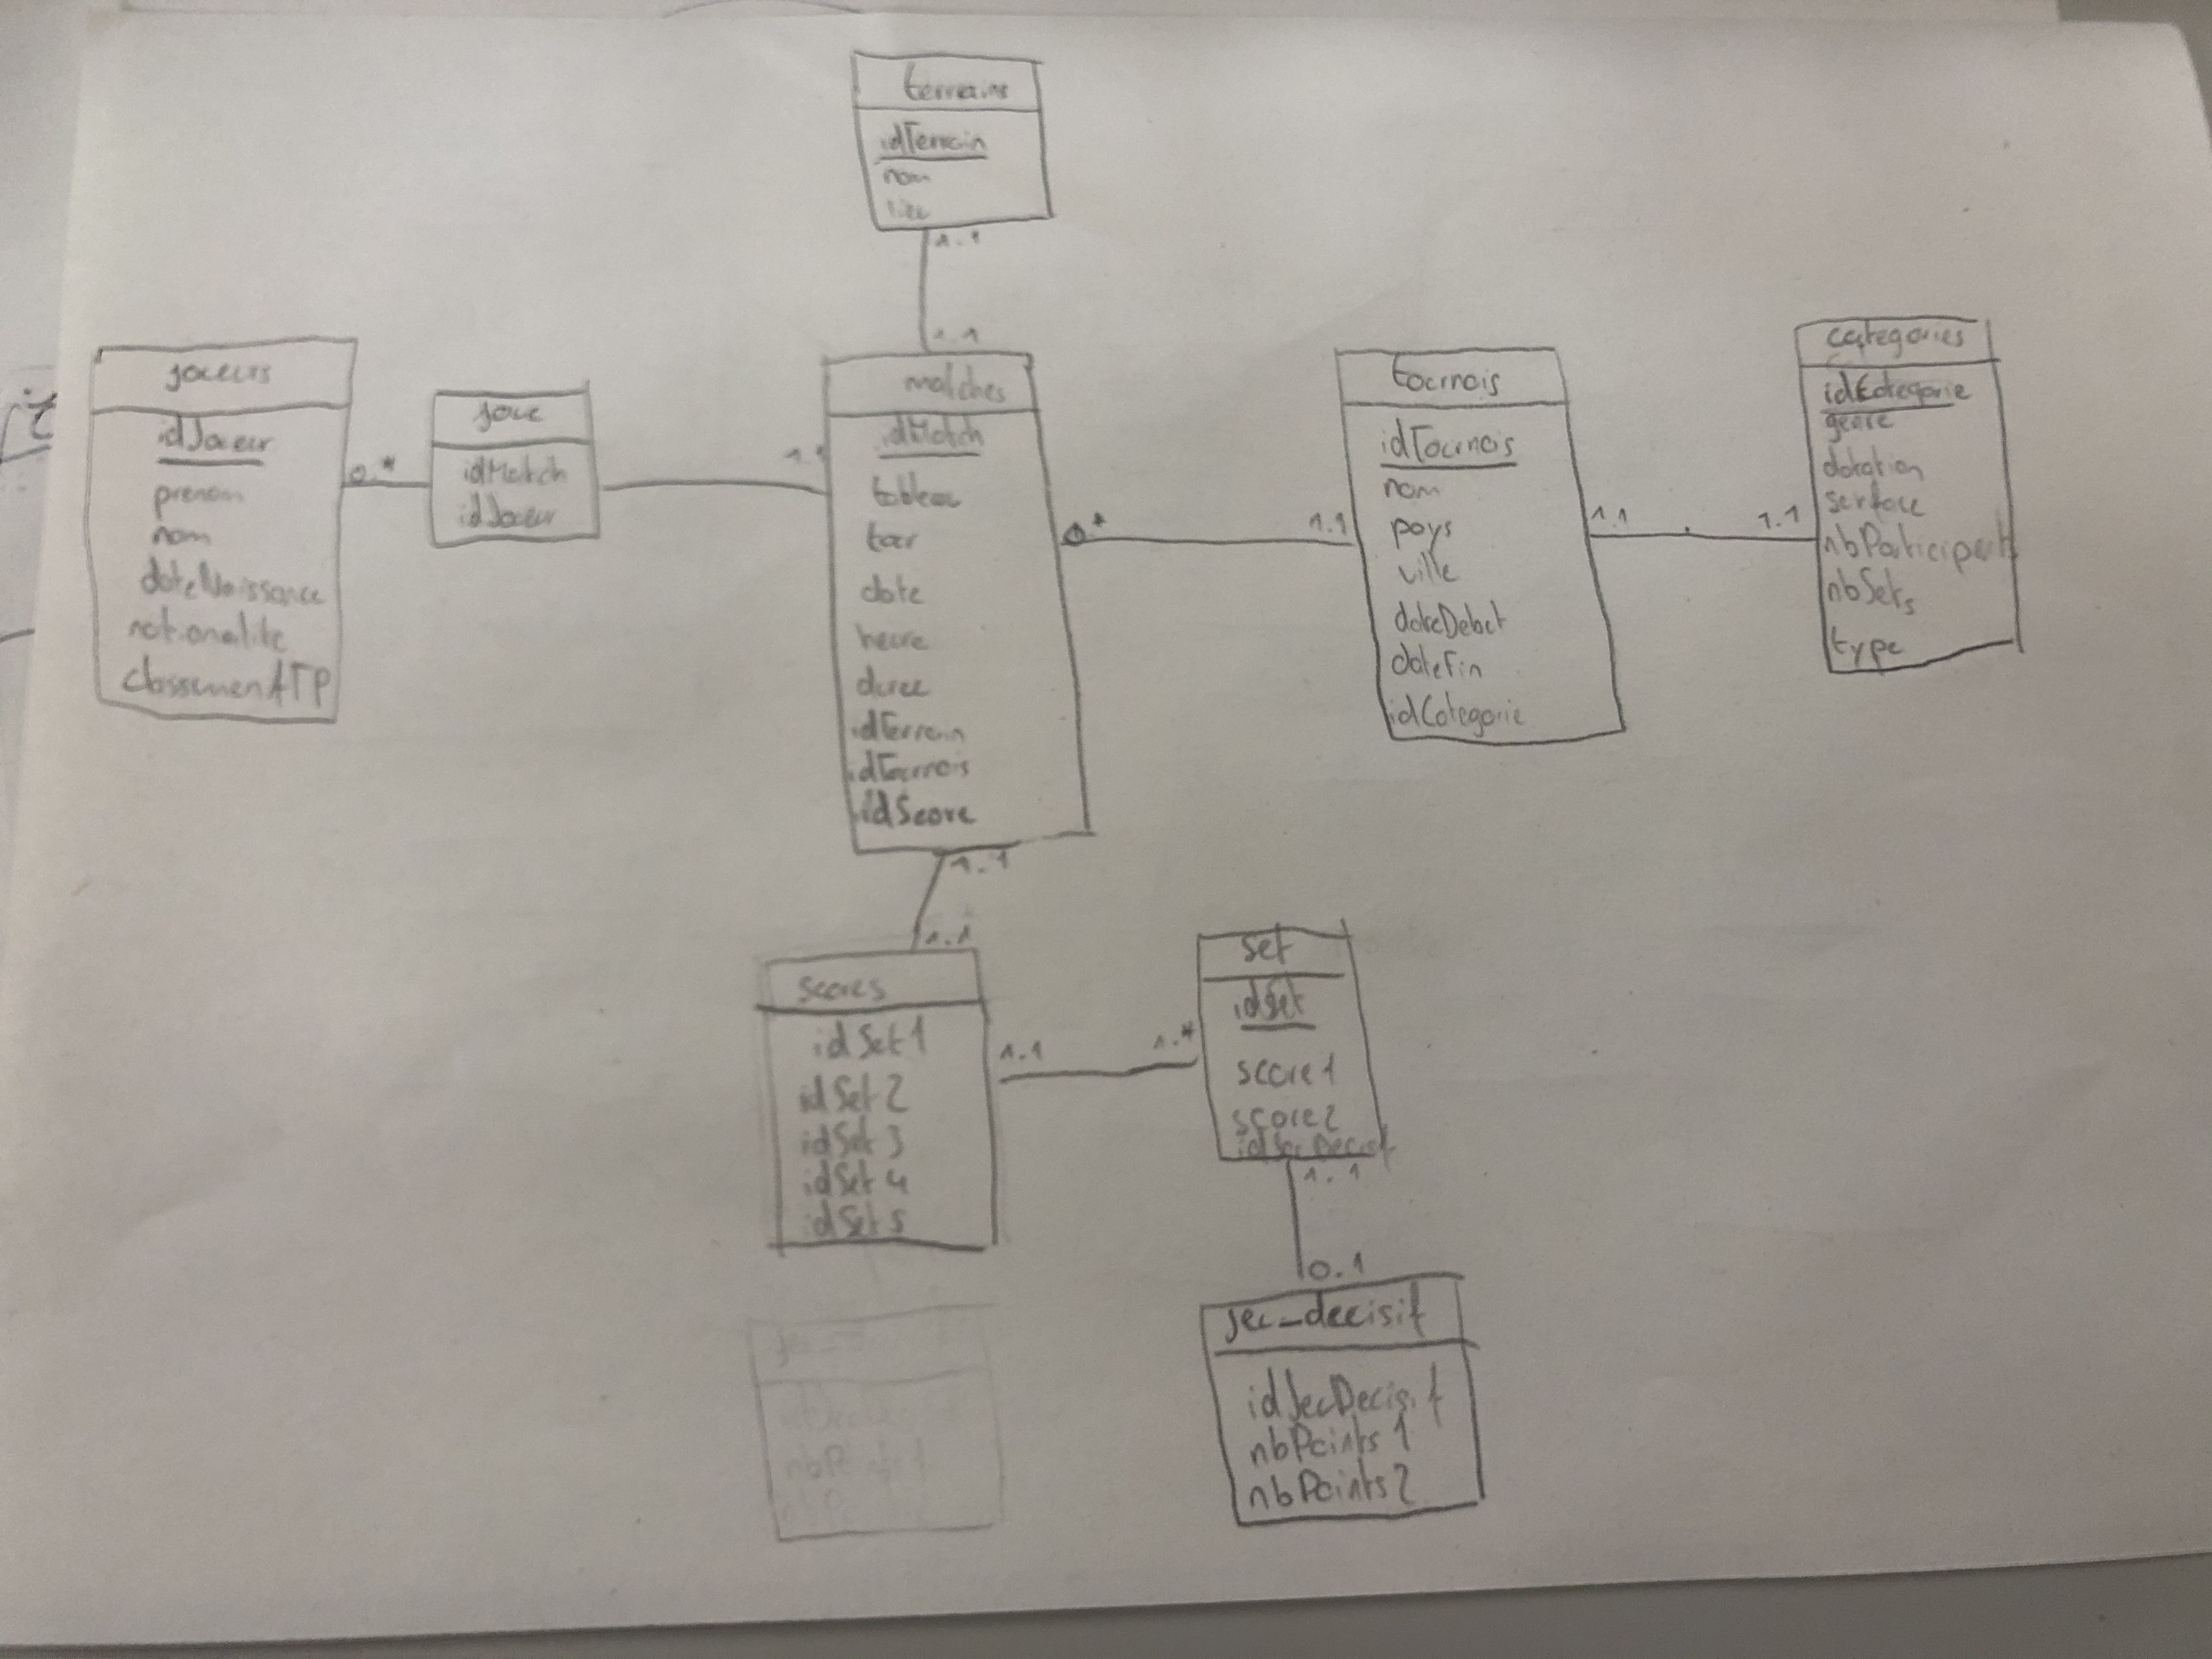 terrains
idTerrain
nom
lieu
1.1
1.1
joueurs
idJoueur
prenom
nom
dateNaissance
nationalite
classemenATP
0.*
joue
idMatch
idJoueur
1.1
matches
idMatch
tableau
tour
date
heure
duree
idTerrain
idTournois
idScore
0*
1.1
tournois
idTournois
nom
pays
ville
dateDebut
dateFin
idCategorie
1.1
1.1
categories
idCategorie
genre
dotation
surface
nbParticipant
nbSets
type
1.1
1.1
scores
idSet1
idSet2
idSet3
idSet4
idSet5
1.1
1.*
set
idSet
score1
score2
idJeuDecisif
1.1
0.1
jeu_decisif
idJeuDecisif
nbPoints1
nbPoints2